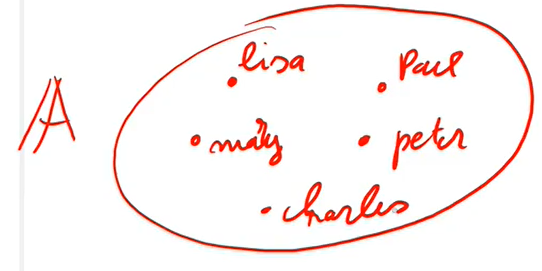 A
lisa
Paul
mary
peter
charles